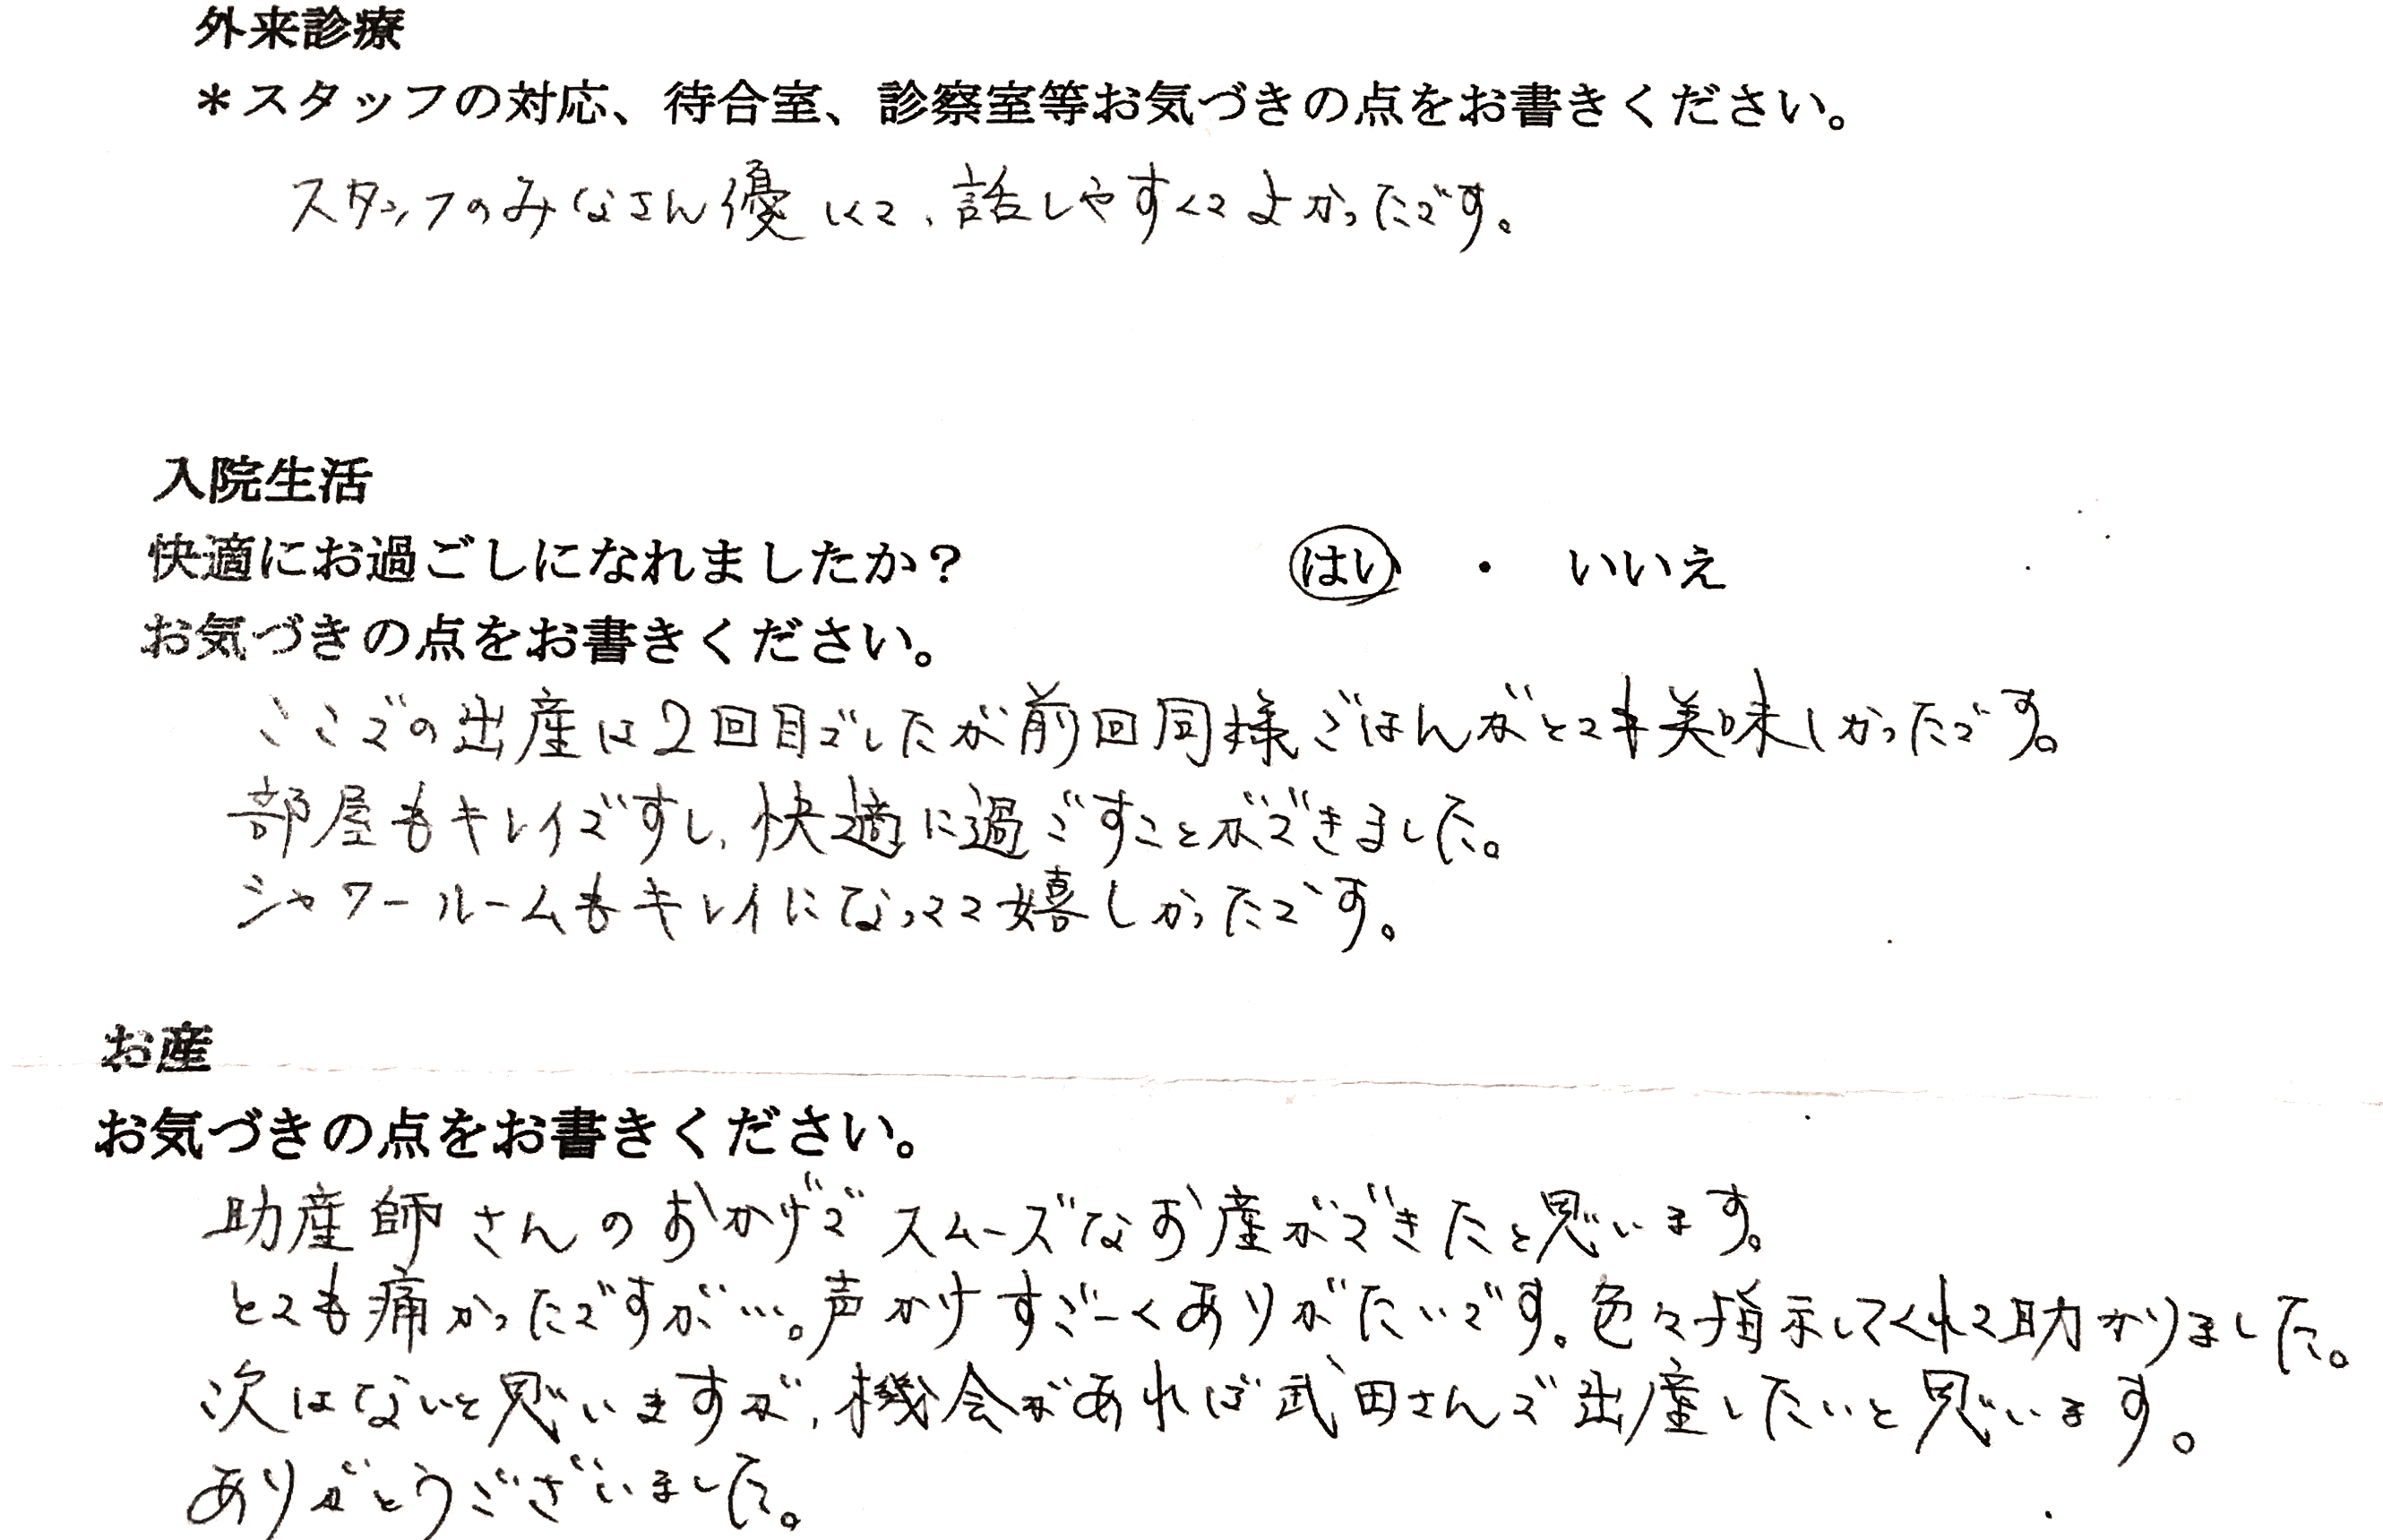 外来診療
＊スタッフの対応、待合室、診察室等お気づきの点をお書きください。
スタッフのみなさん優しくて、話しやすくてよかったです。
入院生活
快適にお過ごしになれましたか？ はい ・ いいえ
お気づきの点をお書きください。
ここでの出産は2回目でしたが前回同様ごはんがとても美味しかったです。
部屋もキレイですし、快適に過ごすことができました。
シャワールームもキレイになってて嬉しかったです。
お産
お気づきの点をお書きください。
助産師さんのおかげでスムーズなお産ができたと思います。
とても痛かったですが…。声かけすごーくありがたいです。色々指示してくれて助かりました。
次はないと思いますが、機会があれば武田さんで出産したいと思います。
ありがとうございました。